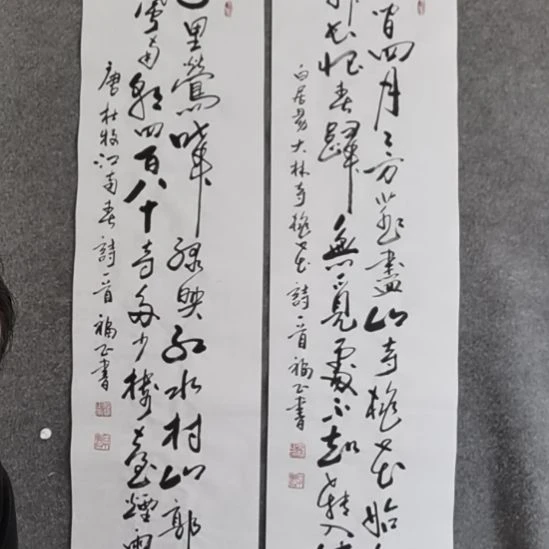 間四月芳菲盡山寺桃花始
長恨春歸無覓處不知轉入
白居易大林寺桃花詩一首 福正書
里鶯啼緑映紅水村山郭
南朝四百八十寺多少樓臺煙雨
唐杜牧江南春詩一首 福正書